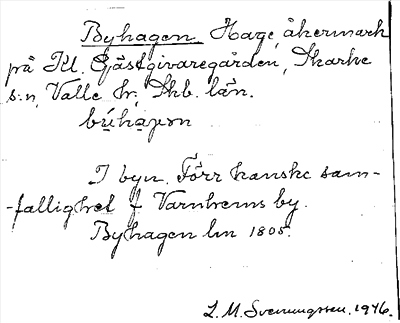 Byhagen. Hage, åkermark
på Kl. Gästgivaregården, Skarke
s:n, Valle hr, Skb. län.
I byn. Förr kanske sam-
-fallighet f Varnhems by.
Byhagen lm 1805.
L. M. Svenungsson. 1946.